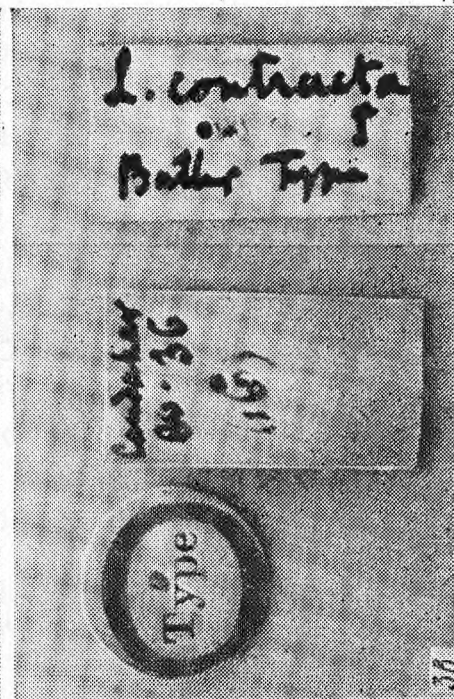 L. contracta
♀
Butler Type
Candahar
80·36
Type
3B